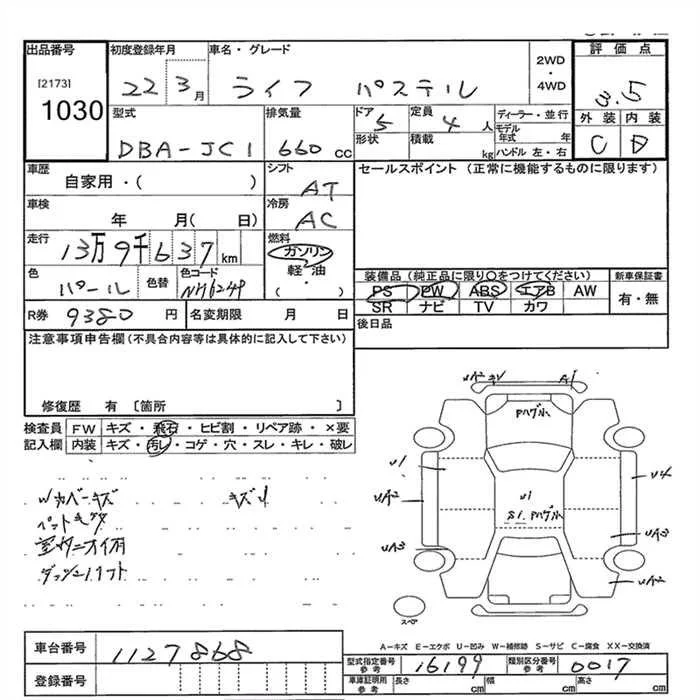 出品番号 初度登録年月 車名・グレード 2WD ・ 4WD 評価点
[2173] 1030 22 3月 ライフ パステル 3.5
型式 排気量 ドア 5 定員 4 人 ディーラー・並行 外装 内装
DBA-JC1 660 cc 形状 積載 kg モデル年式 年 ハンドル 左・右 C D
車歴 シフト セールスポイント (正常に機能するものに限ります)
自家用・( ) AT
車検 冷房
年 月( 日) AC
走行 13万9千637km 燃料 ガソリン
色 色替 色コード 軽・油 装備品(純正品に限り〇をつけてください) 新車保証書
パール NH624P ・ ( ) PS PW ABS エアB AW 有・無
SR ナビ TV カワ
R券 9380 円 名変期限 月 日 後日品
注意事項申告欄(不具合内容等は具体的に記入して下さい)
修復歴 有 [箇所 ]
検査員 FW キズ・飛石・ヒビ割・リペア跡・×要
記入欄 内装 キズ・汚レ・コゲ・穴・スレ・キレ・破レ
Wカバーキズ キズU
ペットキズ
室内ニオイ有
UA2 A1
Pハゲ小
U1 U4
UA2 U1
S1 Pハゲ小
UA3 UA3
UA2
スペア
A-キズ E-エクボ U-凹み W-補修跡 S-サビ C-腐食 XX-交換済
車台番号 1127868
型式指定番号 参考 16199 類別区分番号 参考 0017
登録番号 車庫証明用 参考 長さ cm 幅 cm 高さ cm